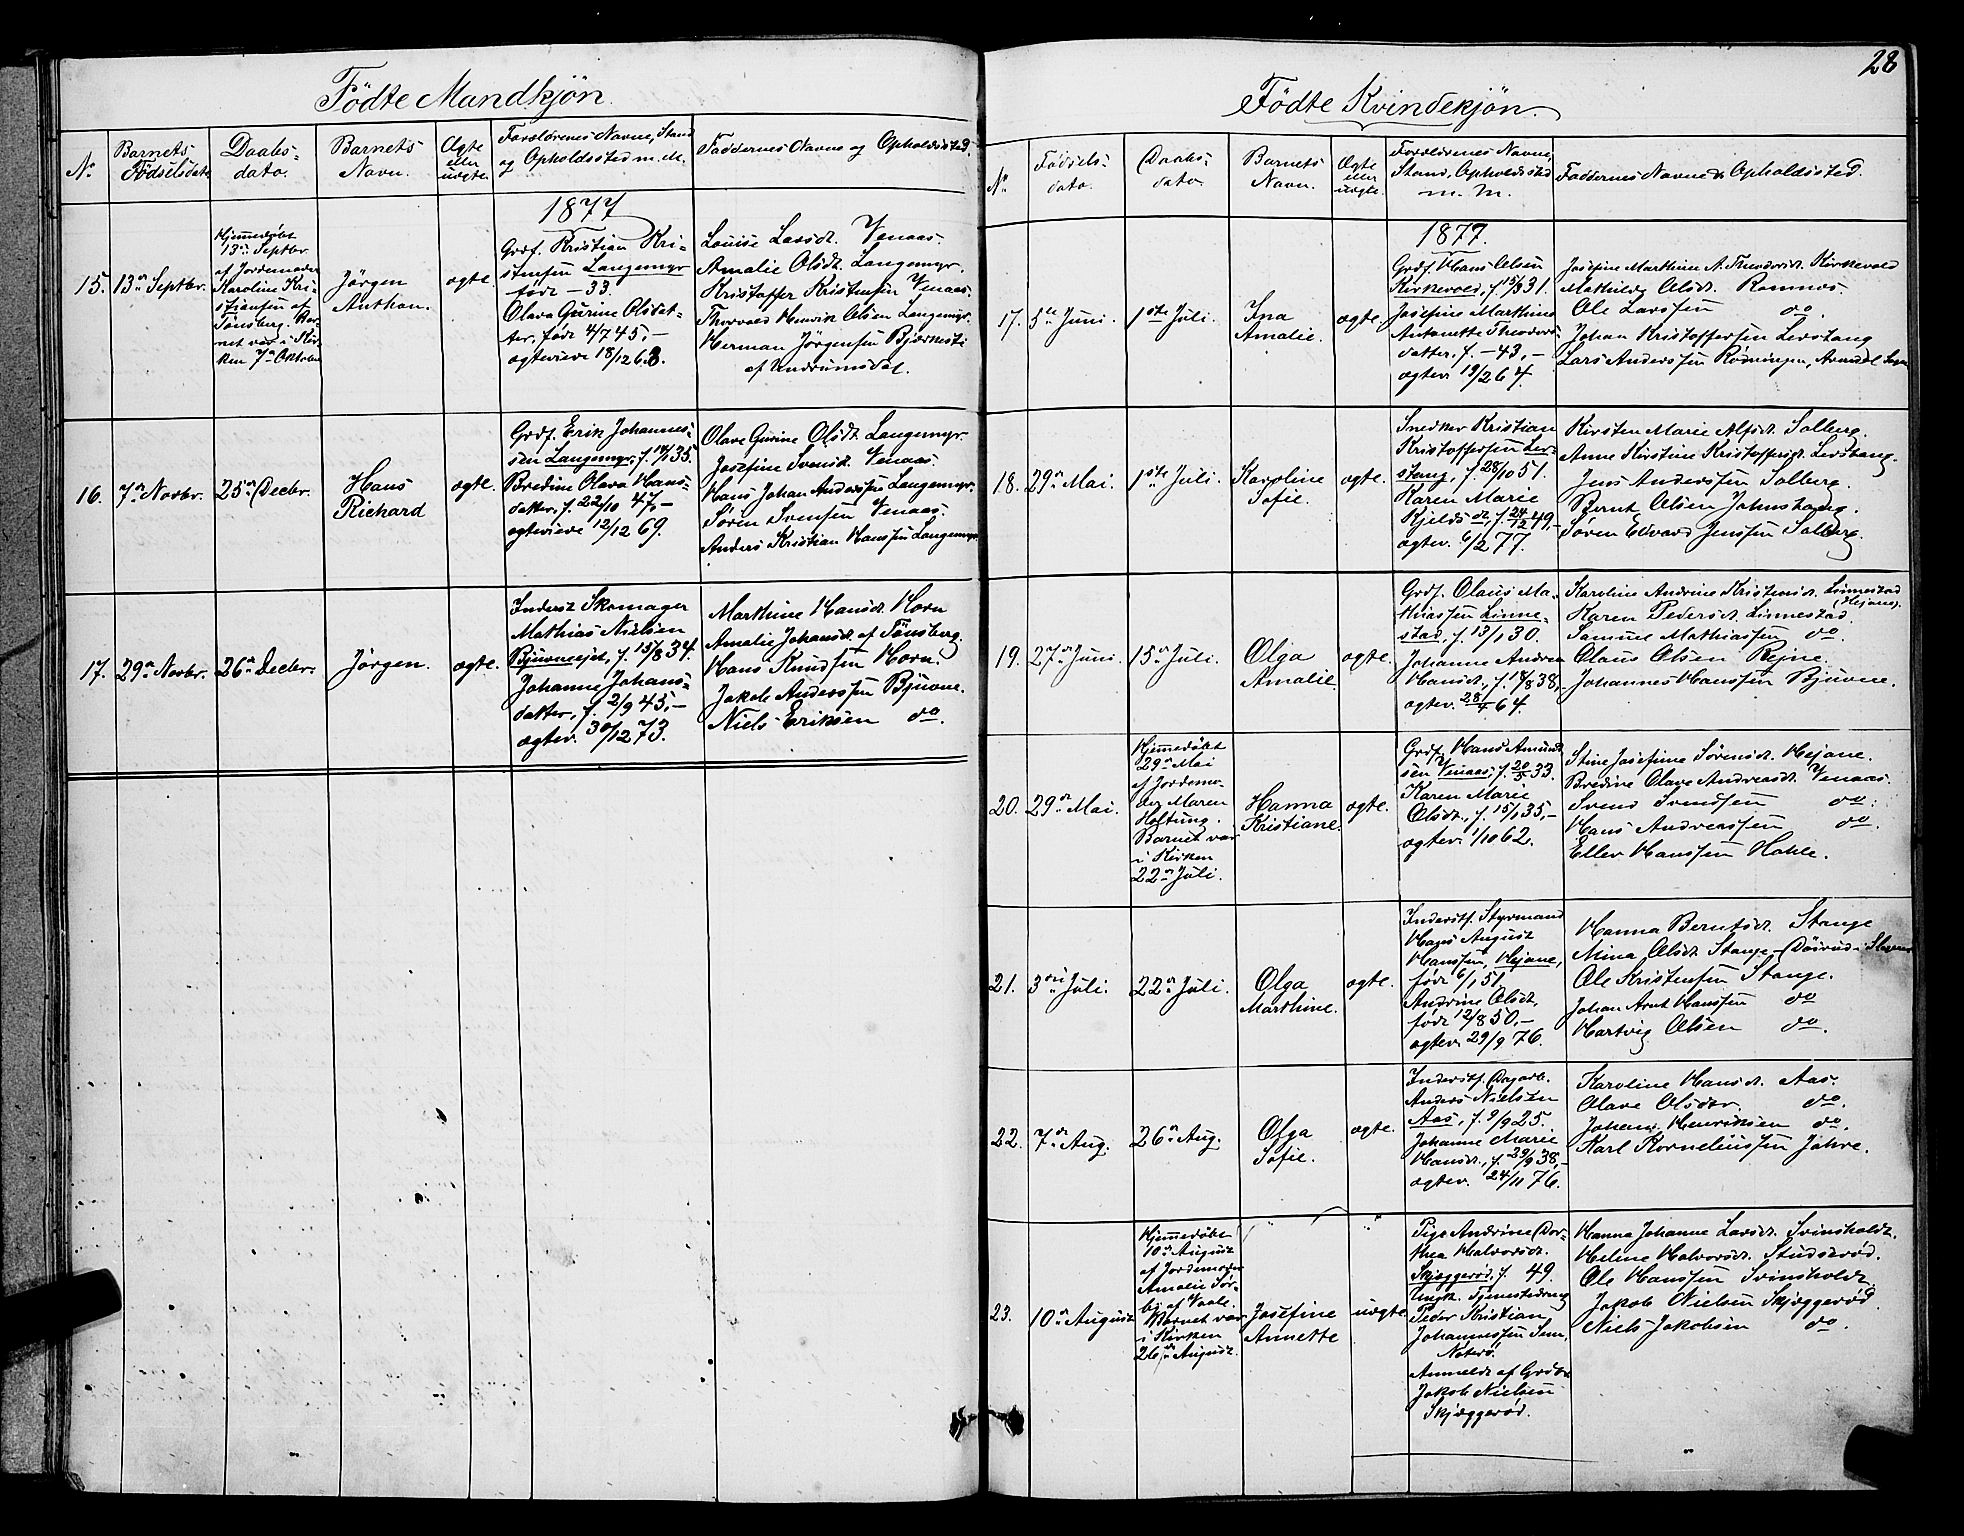 Fødte Mandkjøn.
No
Barnets
Fødselsdato
Daabs-
dato.
Barnets
Navn.
Ægte
eller
uægte.
Forældrenes Navne, Stand
og Opholdssted m. M.
Faddernes Navne og Opholdssted.
1877
15.
13de Septbr.
Hjemmedøbt
13de Septbr.
af Jordemoder
Karoline Kri-
stiansen af
Tønsberg. Bar-
net var i Kir-
ken 7de Oktober
Jørgen
Anthon.
ægte.
Grdf. Kristian Kri-
stensen Langemyr
født -33.
Olava Gurine Olsdat-
ter, født 4/7 45,-
ægteviede 18/12 63.
Louise Larsdt. Venaas.
Amalie Olsdt. Langemyr.
Kristoffer Kristensen Venaas.
Thorvald Henrik Olsen Langemyr.
Herman Jørgensen Bjærnesti
af Undrumsdal.
16.
7de Novbr.
25de Decbr.
Hans
Richard
ægte.
Grdf. Erik Johannes-
sen Langemyr, f. 35.
Bredine Olava Hans-
datter, f. 22/10 47,-
ægteviede 12/12 69.
Olave Gurine Olsdt. Langemyr.
Josefine Svensdt. Venaas.
Hans Johan Anderssen Langemyr.
Søren Svensen Venaas.
Anders Kristian Hanssen Langemyr
17.
29de Novbr.
26de Decbr.
Jørgen.
ægte.
Inderst Skomager
Mathias Nielsen
f. 15/8 34.
Johanne Johans-
datter, f. 2/9 45,-
ægtev. 30/12 73.
Marthine Hansdt. Horn
Amalie Johansdt. af Tønsberg.
Hans Knudsen Horn.
Jakob Anderssen Bjuvne.
Niels Eriksen do.
28
Fødte Kvindekjøn.
No
Fødsels-
dato.
Daabs-
dato.
Barnets
Navn.
Ægte
eller
uægte.
Forældrenes Navne,
Stand, Opholdssted
m. m.
Faddernes Navne & Opholdssted.
1877.
17.
5te Juni.
1ste Juli.
Ina
Amalie.
ægte.
Grdf. Hans Olsen
Kirkevold, f. 15/3 31.
Josefine Marthine
Antonette Theodors-
datter, f. -43,-
ægtev. 19/2 64.
Josefine Marthine A. Theodorsdt. Kirkevold
Mathilde Olsdt. Ramnæs.
Ole Larssen do.
Johan Kristoffersen Lerstang
Lars Anderssen Rødningen,
18.
29de Mai.
1ste Juli.
Karoline
Sofie.
ægte.
Snedker Kristian
Kristoffersen Ler-
stang, f. 28/10 51.
Karen Marie
Kjeldsdt., f. 24/12 49,-
ægtev. 6/2 77.
Kirsten Marie Alfsdt. Solberg.
Anne Kirstine Kristoffersdt. Lerstang.
Jens Anderssen Solberg.
Bernt Olsen Johnstang.
Søren Edvard Jenssen Solberg.
19.
27de Juni.
15de Juli.
Olga
Amalie.
ægte.
Grdf. Olaus Ma-
thiassen Linne-
stad, f. 13/1 30.
Johanne Andrea
Hansdt., f. 18/8 38,-
ægtev. 28/4 64.
Karoline Andrine Kristensdt. Linnestad
(Hejane).
Karen Pedersdt. Linnestad.
Samuel Mathiassen do.
Olaus Olsen Rejne.
Johannes Hanssen Bjuvne.
20.
29de Mai.
Hjemmedøbt
29de Mai
af Jordemo-
der Maren
Holtung.
Barnet var
i Kirken
22de Juli.
Hanna
Kristiane.
ægte.
Grdf. Hans Amund-
sen Venaas, f. 20/5 33.
Karen Marie
Olsdt., f. 15/1 35,-
ægtev. 1/10 62.
Stine Josefine Sørensdt. Hejane.
Bredine Olave Andreasdt. Venaas.
Svend Svendsen do.
Hans Andreassen do.
Eller Hanssen Hakle.
21.
3die Juli.
22de Juli.
Olga
Marthine.
ægte.
Inderstf. Styrmand
Hans August
Hanssen, Hejane,
født 6/1 51
Andrine Olsdt,
født 12/8 50,-
ægtev. 29/9 76.
Hanna Berntsdt. Stange
Mina Olsdt. Stange
Ole Kristensen Stange.
Johan Arnt Hanssen do
Hartvig Olsen do.
22.
7de Aug.
26de Aug.
Olga
Sofie.
ægte.
Inderstf. Dagarb.
Anders Nielsen
Aas, f. 9/9 25.
Johanne Marie
Hansdt., f. 29/9 38,-
ægtev. 24/11 76.
Karoline Hansdt. Aas.
Olave Olsdtr. do.
Johan Henriksen do.
Karl Korneliussen Jahre.
23.
10de August
Hjemmedøbt
10de August
af Jordemoder
Amalie Sør-
by af Vaale.
Barnet var
i Kirken
26de August.
Josefine
Annette
uægte
Pige Andrine Dor-
thea Halvorsdt.
Skjæggerød, f. 49.
Ungk. Tjenestedreng
Peder Kristian
Johannessen Sem,
Nøterø.
Anmeldt af Grdbr
Jakob Nielsen
Skjæggerød.
Hanna Johanne Larsdt. Svinsholdt.
Heline Halvorsdt. Studserød.
Ole Hanssen Svinsholdt.
Jakob Nielsen Skjæggerød.
Niels Jakobsen do.